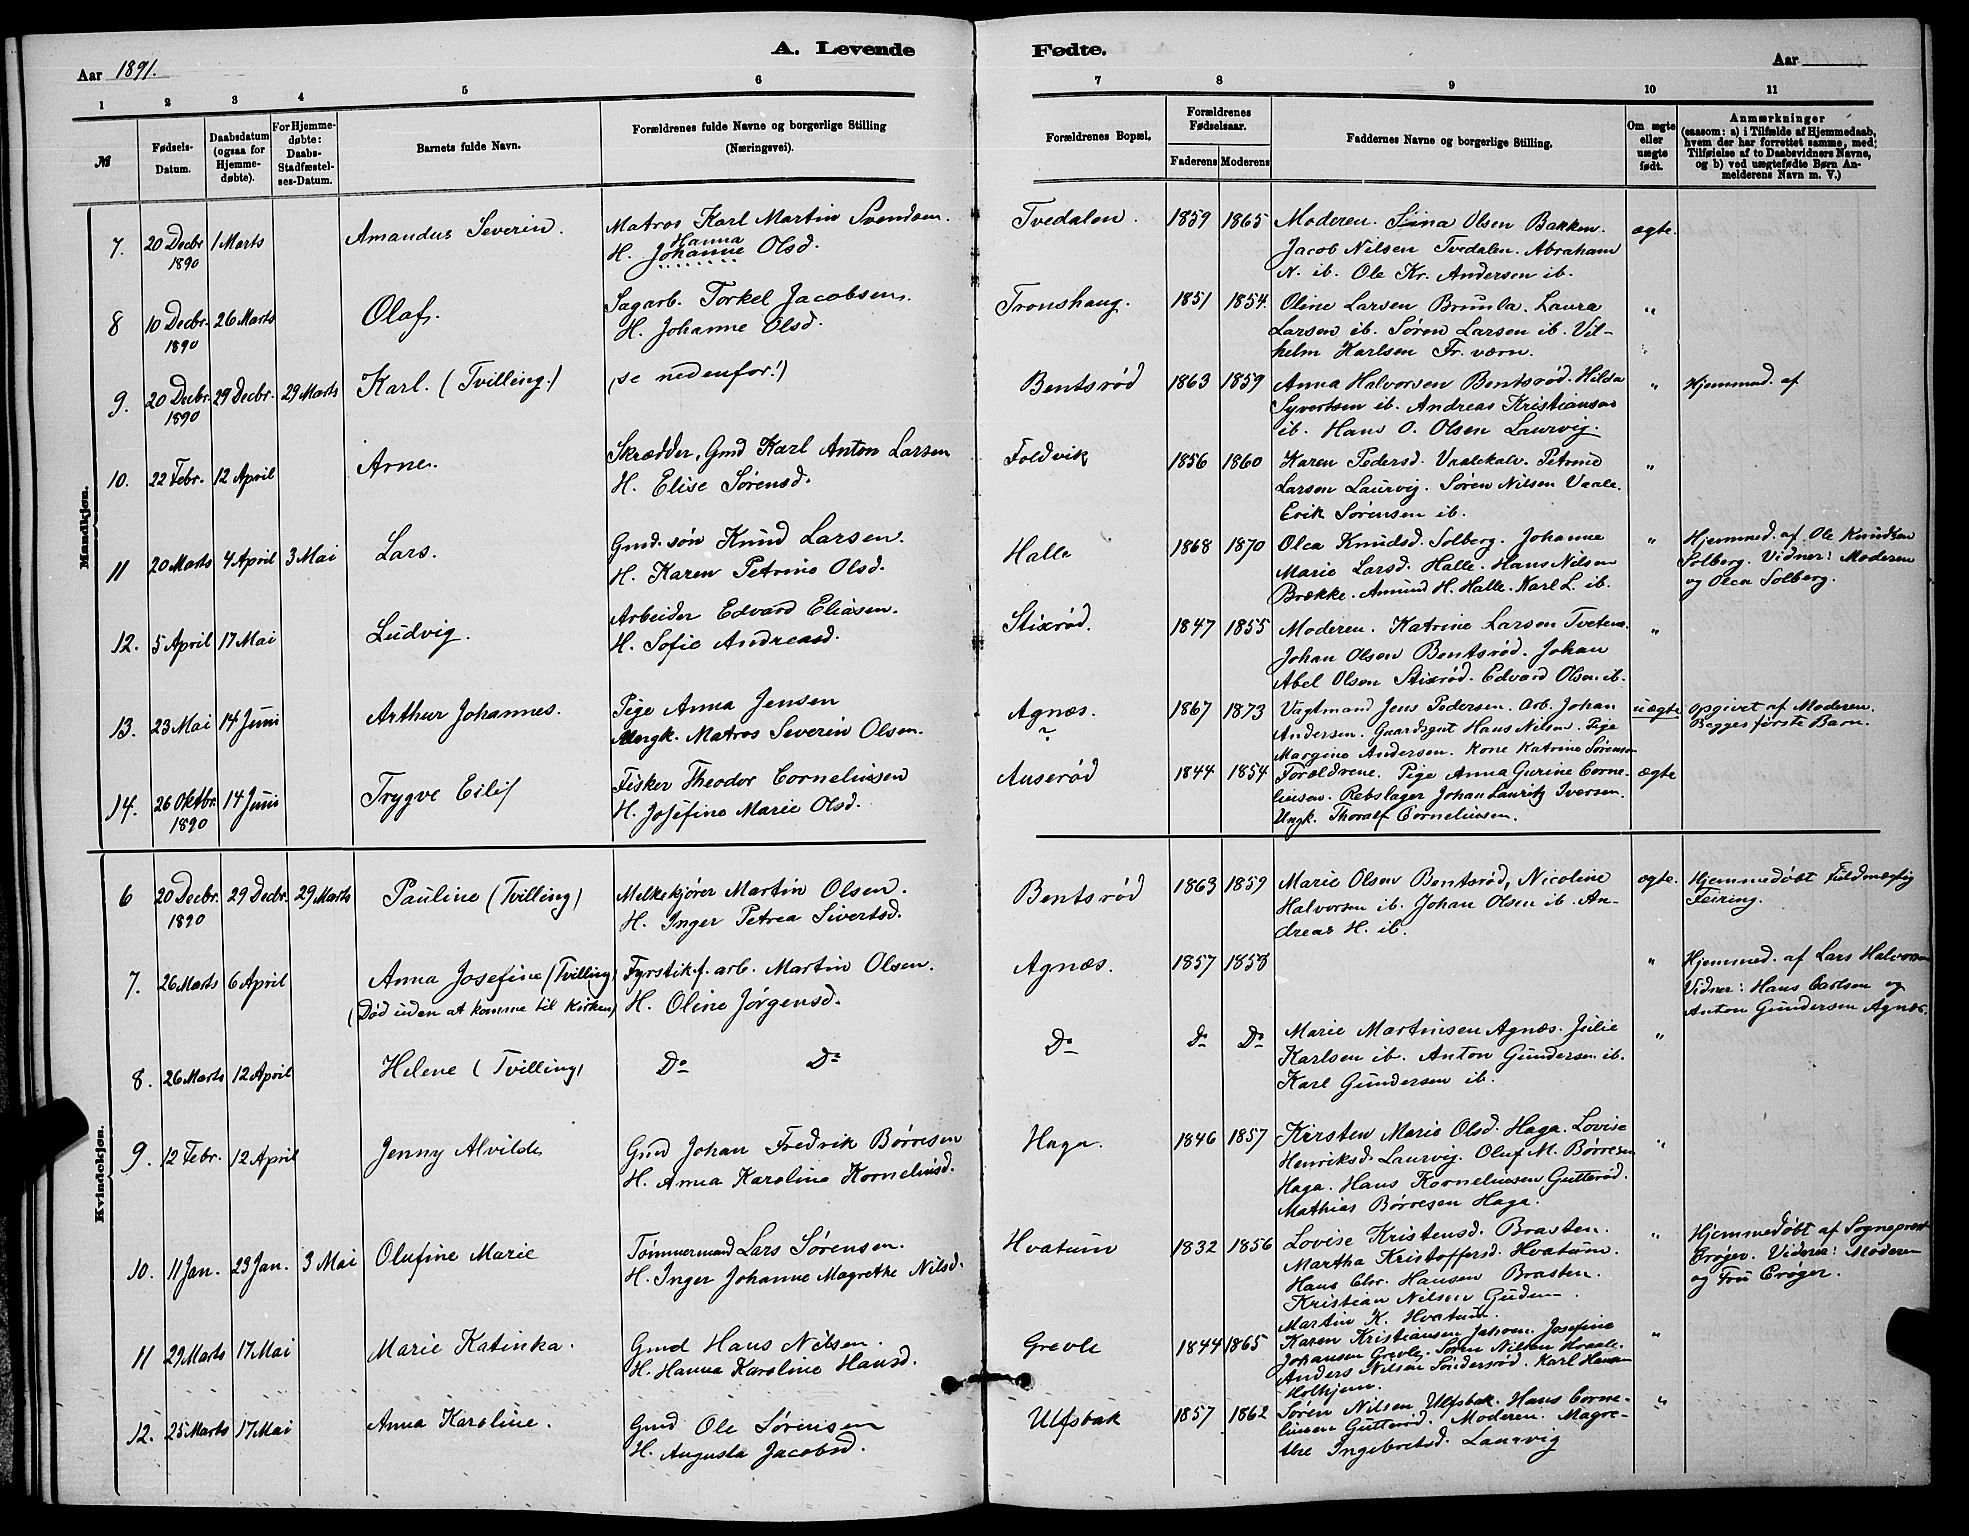 A. Levende
Fødte.
Aar 1891.
Aar
1 2 3 4 5 6 7 8 9 10 11
№
Fødsels-Datum.
Daabsdatum (ogsaa for Hjemme-døbte).
For Hjemme-døbte: Daabs-Stadfæstel-ses-Datum.
Barnets fulde Navn.
Forældrenes fulde Navne og borgerlige Stilling (Næringsvei).
Forældrenes Bopæl.
Forældrenes Fødselsaar.
Faderens Moderens
Faddernes Navne og borgerlige Stilling.
Om ægte eller uægte født.
Anmærkninger
(saasom: a) i Tilfælde af Hjemmedaab,
hvem der har forrettet samme, med
Tilføielse af to Daabsvidners Navne,
og b) ved uægtefødte Børn An-
melderens Navn m. V.)
Mandkjøn.
7. 20 Decbr 1890 1 Marts Amandus Severin. Matros Karl Martin Svendsen.
H. Johanne Hanna Olsd.
Tvedalen. 1859 1865 Moderen. Lina Olsen Bakken. ægte.
Jacob Nilsen Tvedalen. Abraham
N. ib. Ole Kr. Andersen ib.
8 10 Decbr. 1890 26 Marts Olaf. Sagarb. Torkel Jacobsen.
H. Johanne Olsd.
Tronshaug. 1851 1854. Oline Larsen Brunla. Laura "
Larsen ib. Søren Larsen ib. Vil-
helm Karlsen Fr. værn.
9. 20 Decbr. 1890 29 Decbr. 29 Marts Karl. (Tvilling.) (se nedenfor!)
Bentsrød 1863 1859 Anna Halvorsen Bentsrød. Hilda " Hjemmed. af
Syvertsen ib. Andreas Kristiansen
ib. Hans O. Olsen Laurvig.
10. 22 Febr. 12 April Arne. Skrædder, Gmd Karl Anton Larsen
H. Elise Sørensd.
Foldvik 1856 1860 Karen Pedersd. Vaalekalv. Petrine "
Larsen Laurvig. Søren Nilsen Vaale.
Erik Sørensen ib.
11 20 Marts 4 April 3 Mai Lars. Gmd. søn Knud Larsen.
H. Karen Petrine Olsd.
Halle 1868 1870 Olea Knudsd. Solberg. Johanne " Hjemmed. af Ole Knudsen
Marie Larsd. Halle. Hans Nilsen Solberg. Vidner: Moderen
Brække. Amund H. Halle. Karl L. ib. og Olea Solberg.
12. 5 April 17 Mai Ludvig. Arbeider Edvard Eliasen.
H. Sofie Andreasd.
Stixrød. 1847 1855 Moderen. Katrine Larsen Tvetene. "
Johan Olsen Bentsrød. Johan
Abel Olsen Stixrød. Edvard Olsen ib.
13. 23 Mai 14 Juni Arthur Johannes. Pige Anna Jensen
Ungk. Matros Severin Olsen.
Agnæs. 1867 1873 Vagtmand Jens Pedersen. Arb. Johan uægte opgivet af Moderen.
Andersen. Gaardsgut Hans Nilsen. Pige Begges første Barn.
Margine Andersen. Kone Katrine Sørensen
14. 26 Oktbr. 1890 14 Juni Trygve Eilif Fisker Theodor Corneliussen
H. Josefine Marie Olsd.
Auserød 1844 1854 Forældrene. Pige Anna Gurine Corne- ægte
liusen. Rebslager Johan Lauritz Iversen.
Ungk. Thoralf Corneliussen.
Kvindekjøn.
6 20 Decbr. 1890 29 Decbr. 29 Marts Pauline (Tvilling) Melkekjører Martin Olsen.
H. Inger Petrea Sivertsd.
Bentsrød 1863 1859 Marie Olsen Bentsrød, Nicoline ægte. Hjemmedøbt Fuldmægtig
Halvorsen ib. Johan Olsen ib. An- Feiring.
dreas H. ib.
7. 26 Marts 6 April Anna Josefine (Tvilling) Fyrstikf. arb. Martin Olsen.
(Død uden at komme til Kirken) H. Oline Jørgensd.
Agnæs. 1857 1858 " Hjemmed. af Lars Halvorsen
Vidner: Hans Carlsen og
Anton Gundersen Agnæs.
8. 26 Marts 12 April Helene (Tvilling) Do Do
Do Do Do Marie Martinsen Agnæs. Julie "
Karlsen ib. Anton Gundersen ib.
Karl Gundersen ib.
9. 12 Febr. 12 April Jenny Alvilde Gmd Johan Fredrik Børresen
H. Anna Karoline Korneliusd.
Haga. 1846 1857 Kirsten Marie Olsd. Haga. Lovise "
Henriksd. Laurvig. Oluf M. Børresen
Haga. Hans Korneliussen Gutterød.
Mathias Børresen Haga.
10. 11 Jan. 23 Jan. 3 Mai Olufine Marie Tømmermand Lars Sørensen.
H. Inger Johanne Magrethe Nilsd.
Hvatum 1832 1856 Lovise Kristensd. Brasten. " Hjemmedøbt af Sogneprest
Martha Kristoffersd. Hvatum. Crøger. Vidner: Moderen
Hans Chr. Hansen Brasten. og Fru Crøger.
Kristian Nilsen Guden.
Martin K. Hvatum.
11 29 Marts 17 Mai Marie Katinka. Gmd Hans Nilsen.
H. Hanna Karoline Hansd.
Grevle 1844 1865 Karen Kristiansen Jahom. Josefine "
Johansen Grevle. Søren Nilsen
Anders Nilsen Søndersrød. Karl Hansen
Holhjem.
12. 25 Marts 17 Mai Anna Karoline. Gmd Ole Sørensen
H. Augusta Jacobsd.
Ulfsbak 1857 1862 Søren Nilsen Ulfsbak. Hans Corne- "
liusen Gutterød. Moderen. Magre-
the Ingebretsd. Laurvig